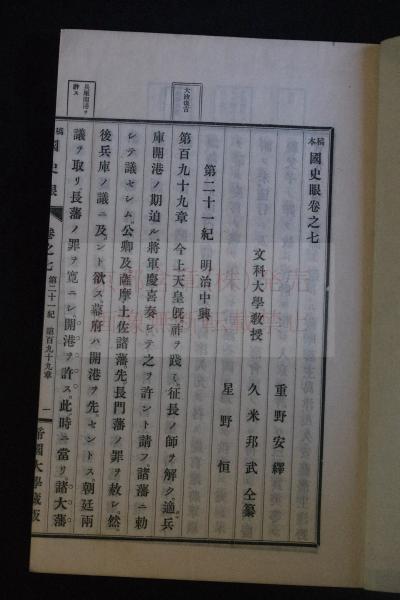 稿本 國史眼卷之七
文科大學教授
重野安繹
久米邦武 仝纂
星野恒
第二十一紀 明治中興
第百九十九章 今上天皇既ニ祚ヲ踐ミ、征長ノ師ヲ解ク、適兵
庫開港ノ期迫ル、將軍慶喜奏シテ之ヲ許サント請フ、諸藩ニ勅
シテ議セシム、公卿及薩摩土佐諸藩、先長門藩ノ罪ヲ赦シ、然
後兵庫ノ議ニ及バント欲ス、幕府ハ開港ヲ先ニセントス、朝廷兩
議ヲ取リ、長藩ノ罪ヲ寬ニシ、開港ヲ許ス、此時ニ當リ、諸大藩
大政復古
兵庫開港ヲ許ス
稿本 國史眼 卷之七 第二十一紀 第百九十九章 一 帝國大學藏版